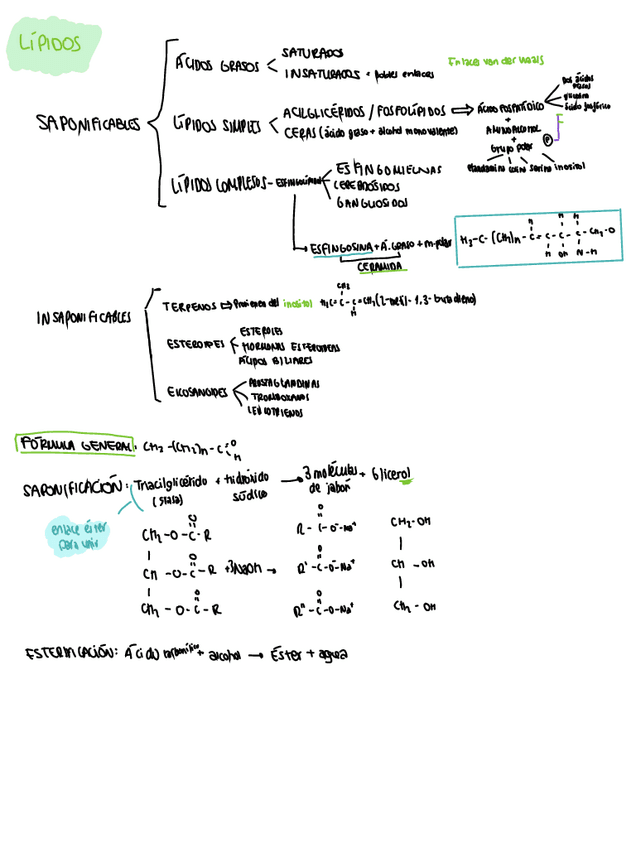 LÍPIDOS
SAPONIFICABLES
ÁCIDOS GRASOS
SATURADOS
INSATURADOS → dobles enlaces
Enlace van der waals
LÍPIDOS SIMPLES
ACILGLICÉRIDOS / FOSFOLÍPIDOS ⇒ ÁCIDO FOSFATÍDICO
CERAS (ácido graso + alcohol monovalente)
Dos ácidos grasos
glicerina
ácido fosfórico
+
AMINOALCOHOL
+
Grupo polar
P
F
etanolamina colina serina inositol
LÍPIDOS COMPLEJOS - ESFINGOLÍPIDOS
ESFINGOMIELINAS
CEREBRÓSIDOS
GANGLIÓSIDOS
ESFINGOSINA + Á. GRASO + m. polar
CERAMIDA
H3-C-(CH2)n-C=C-C-C-CH2-O
H H H
H OH N-H
INSAPONIFICABLES
TERPENOS ⇒ Provienen del inositol
CH3
H2C=C-C=CH2 (2-metil-1,3-butadieno)
H
ESTEROIDES
ESTEROLES
HORMONAS ESTEROIDEAS
ÁCIDOS BILIARES
EICOSANOIDES
PROSTAGLANDINAS
TROMBOXANOS
LEUCOTRIENOS
FÓRMULA GENERAL: CH3-(CH2)n-C O H
SAPONIFICACIÓN: Triacilglicérido + hidróxido → 3 moléculas + Glicerol
(sosa) sódico de jabón
enlace éster
para unir
O O
CH2-O-C-R R-C-O-Na+ CH2-OH
O O
CH-O-C-R +3NaOH → R'-C-O-Na+ CH-OH
O O
CH2-O-C-R R''-C-O-Na+ CH2-OH
ESTERIFICACIÓN: Ácido carboxílico + alcohol → Éster + agua